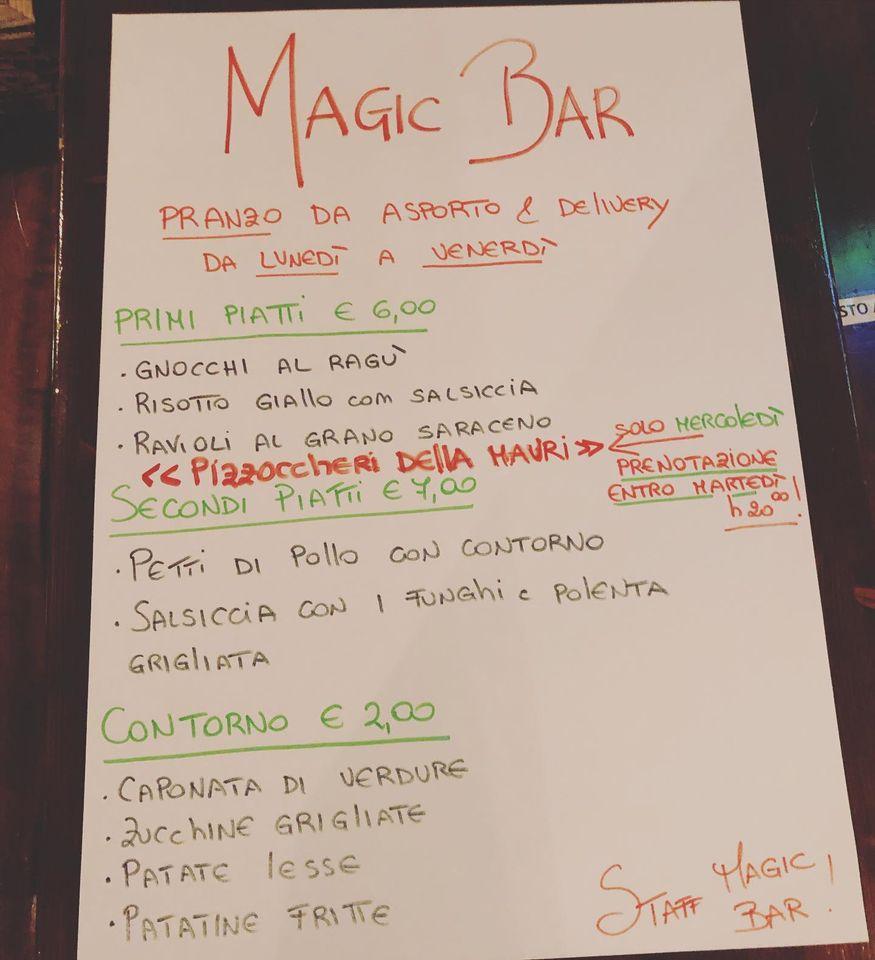 MAGIC BAR
PRANZO DA ASPORTO & DELIVERY
DA LUNEDÌ A VENERDÌ
PRIMI PIATTI € 6,00
• GNOCCHI AL RAGÙ
• RISOTTO GIALLO CON SALSICCIA
• RAVIOLI AL GRANO SARACENO
<< PIZZOCCHERI DELLA MAURI >>
SOLO MERCOLEDÌ
PRENOTAZIONE
ENTRO MARTEDÌ
h 20°° !
SECONDI PIATTI € 7,00
• PETTI DI POLLO CON CONTORNO
• SALSICCIA CON I FUNGHI E POLENTA
GRIGLIATA
CONTORNO € 2,00
• CAPONATA DI VERDURE
• ZUCCHINE GRIGLIATE
• PATATE LESSE
• PATATINE FRITTE
STAFF MAGIC
BAR !
STO